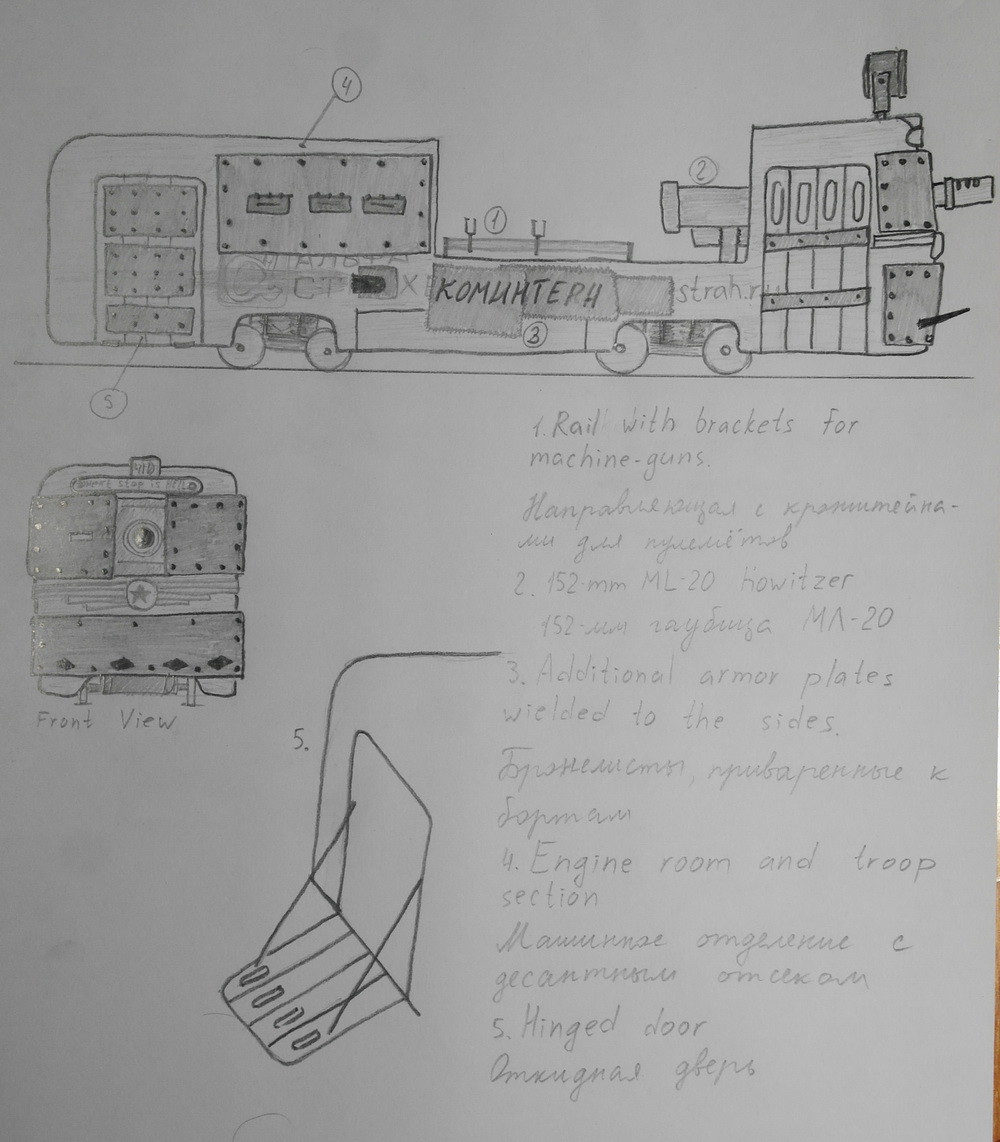 4
1
2
АЛЬФА
СТРАХ
КОМИНТЕРН
strah.ru
3
5
1. Rail with brackets for
machine-guns.
Направляющая с кронштейна-
ми для пулемётов
2. 152-mm ML-20 howitzer
152-мм гаубица МЛ-20
3. Additional armor plates
wielded to the sides.
Бронелисты, приваренные к
бортам
4. Engine room and troop
section
Машинное отделение с
десантным отсеком
5. Hinged door
Откидная дверь
410
stop is HELL
Front View
5.